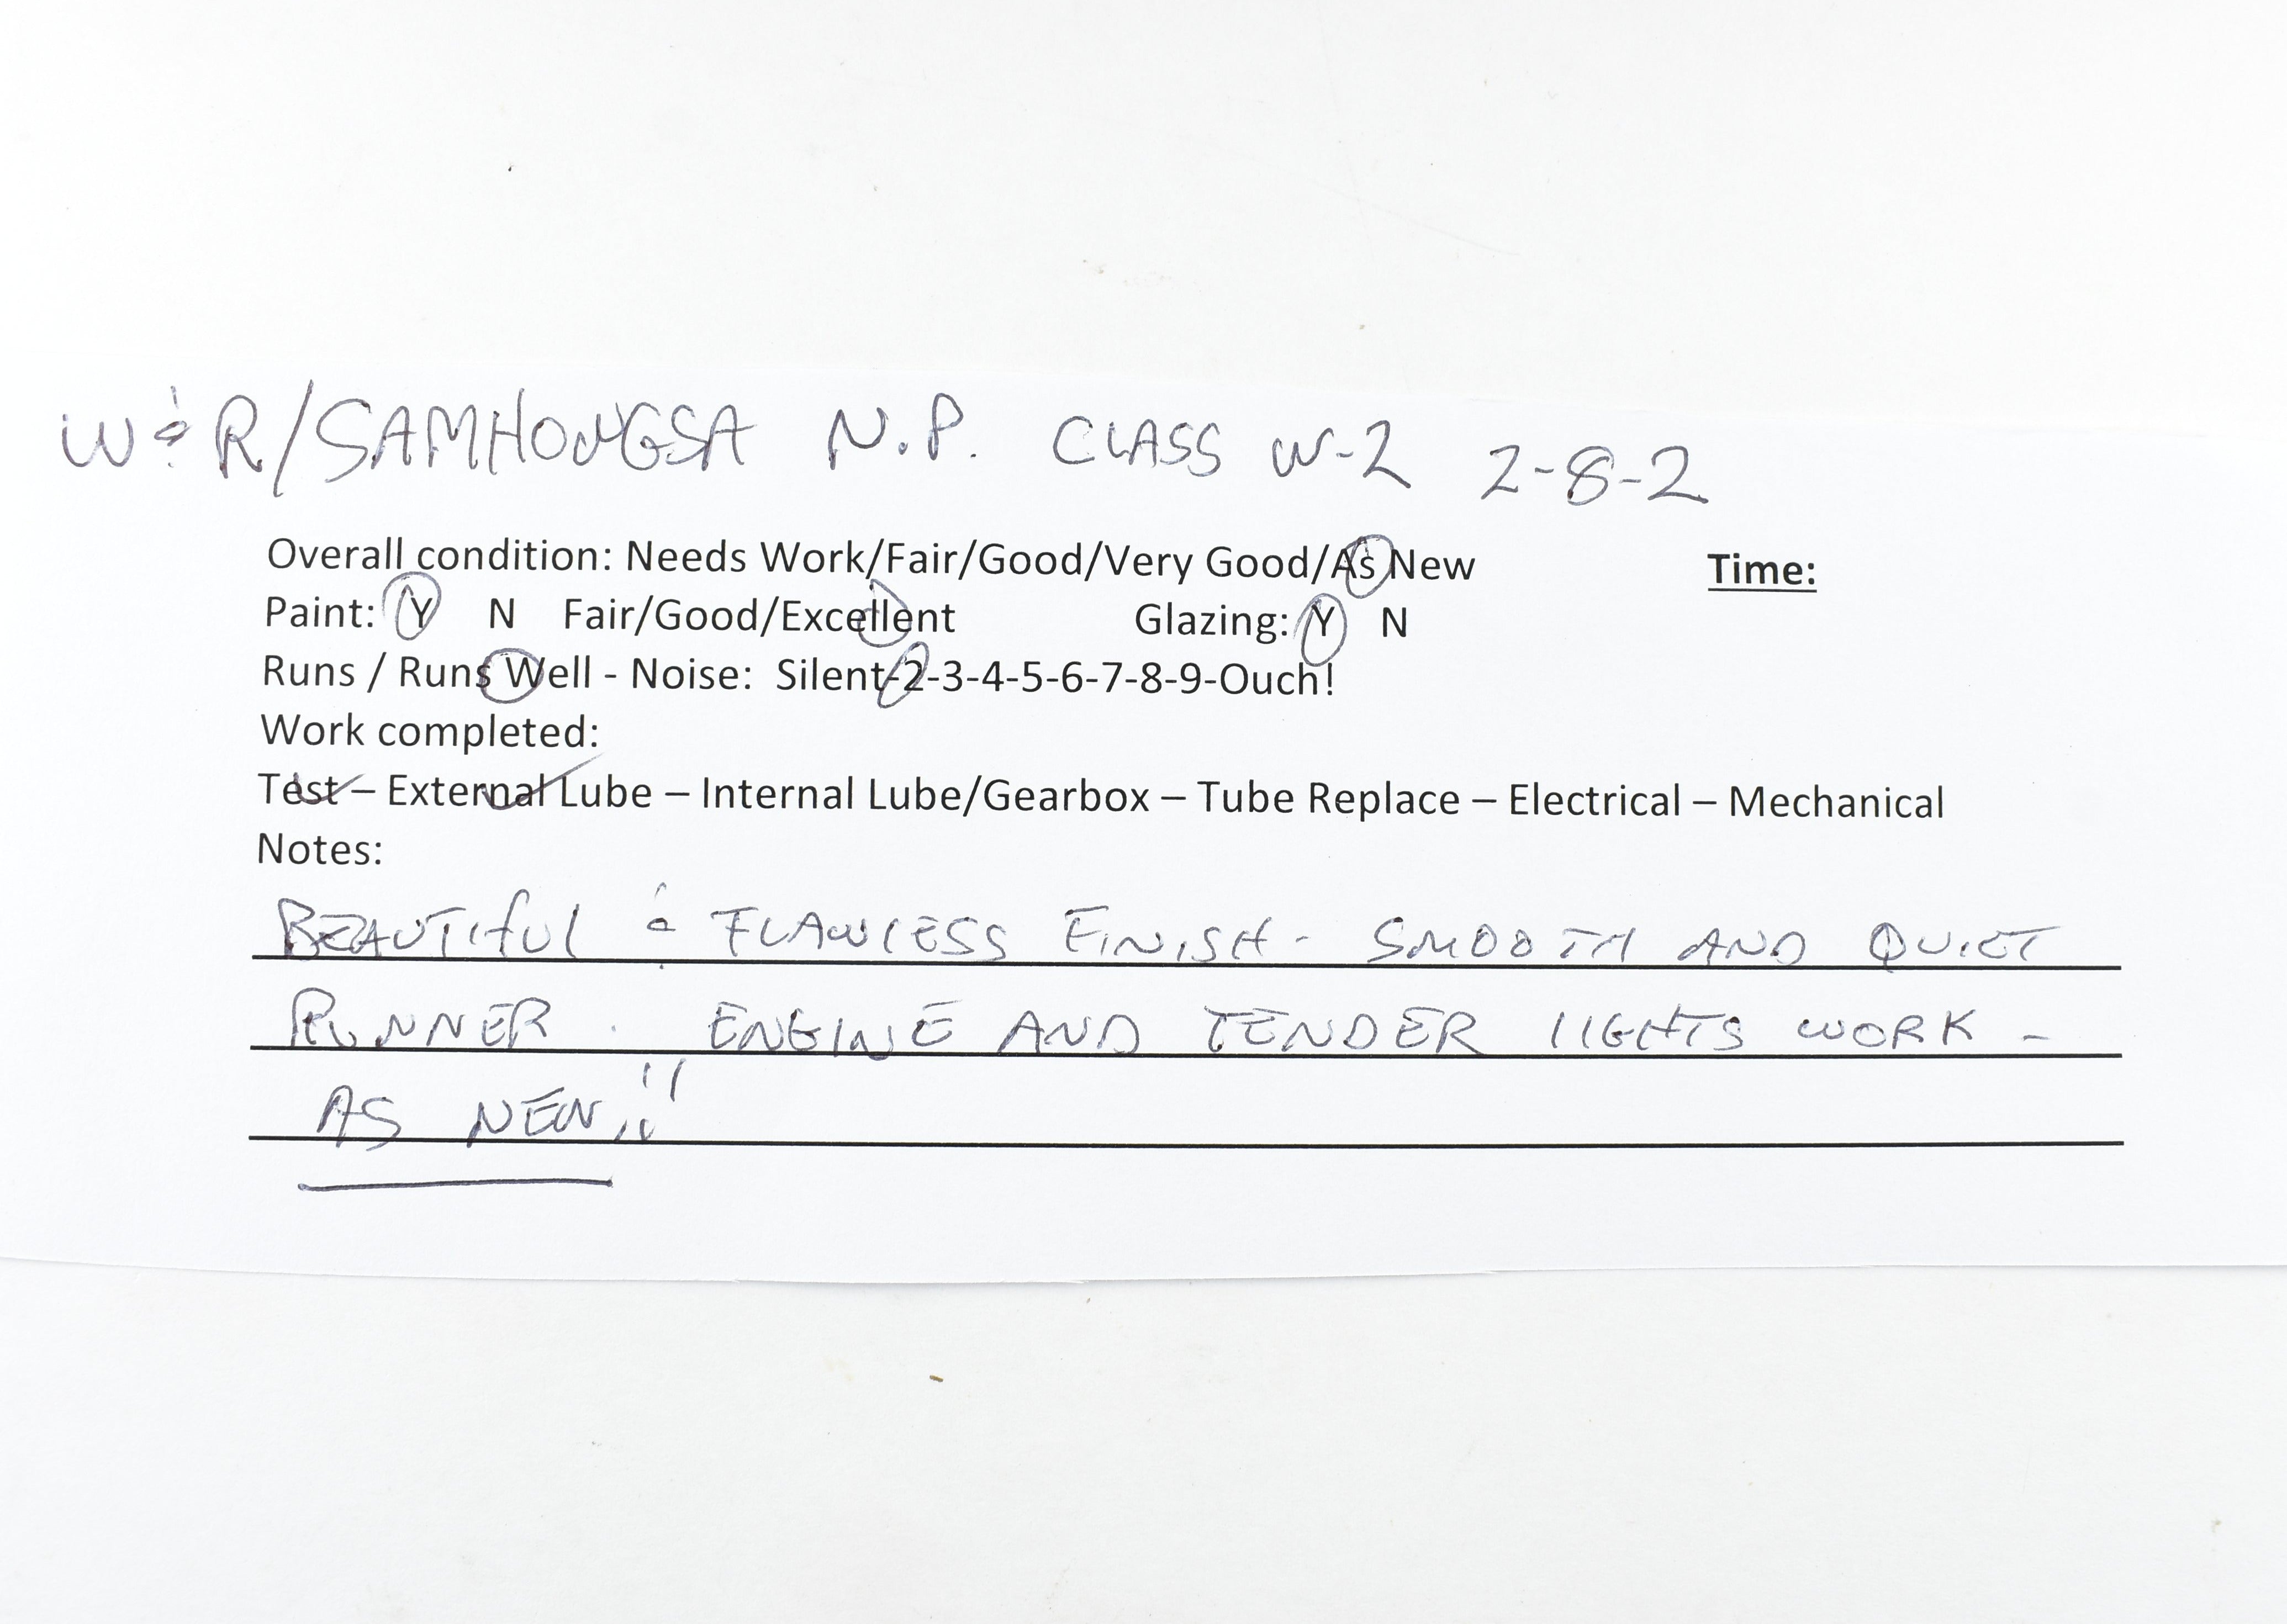 W & R/SAMHONGSA N.P. CLASS W-2 2-8-2
Overall condition: Needs Work/Fair/Good/Very Good/As New Time:
Paint: Y N Fair/Good/Excellent Glazing: Y N
Runs / Runs Well - Noise: Silent-2-3-4-5-6-7-8-9-Ouch!
Work completed:
Test – External Lube – Internal Lube/Gearbox – Tube Replace – Electrical – Mechanical
Notes:
BEAUTIFUL & FLAWLESS FINISH - SMOOTH AND QUIET
RUNNER. ENGINE AND TENDER LIGHTS WORK -
AS NEW!!